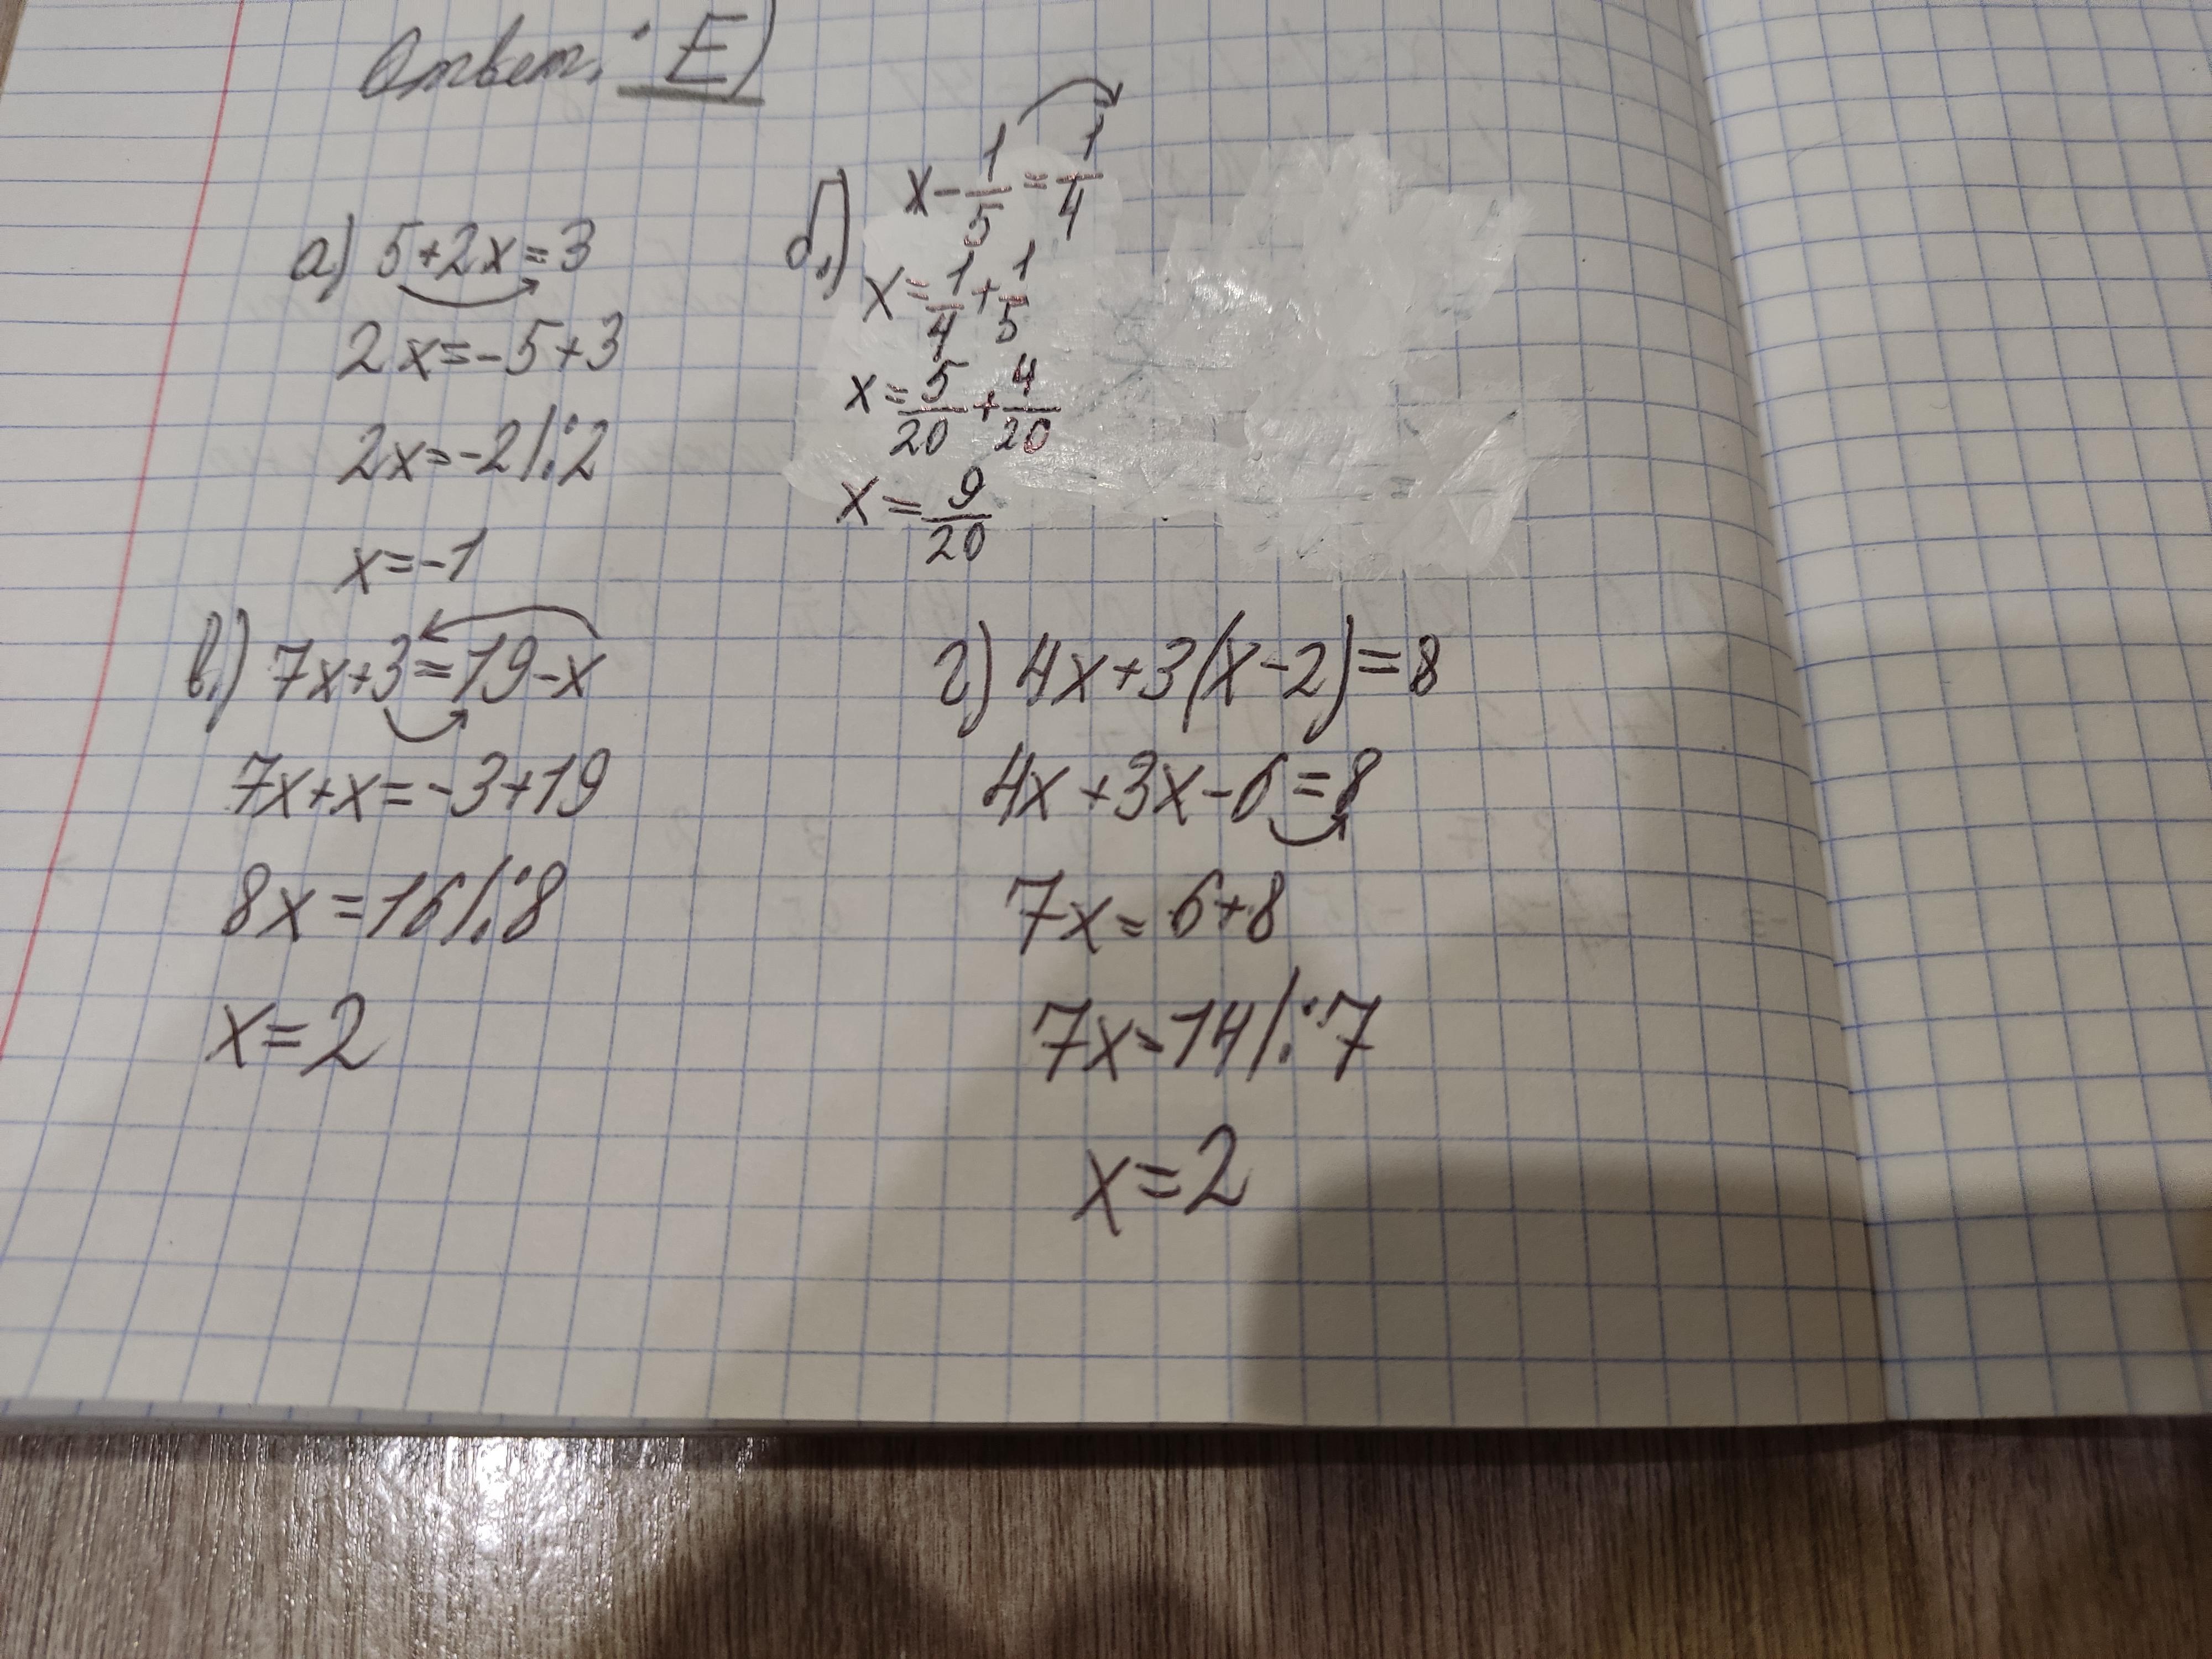 Ответ: E)
а) 5+2x=3
2x=-5+3
2x=-2/:2
x=-1
б.) x-1/5=1/4
x=1/4+1/5
x=5/20+4/20
x=9/20
в.) 7x+3=19-x
7x+x=-3+19
8x=16/:8
x=2
г) 4x+3(x-2)=8
4x+3x-6=8
7x=6+8
7x=14/:7
x=2